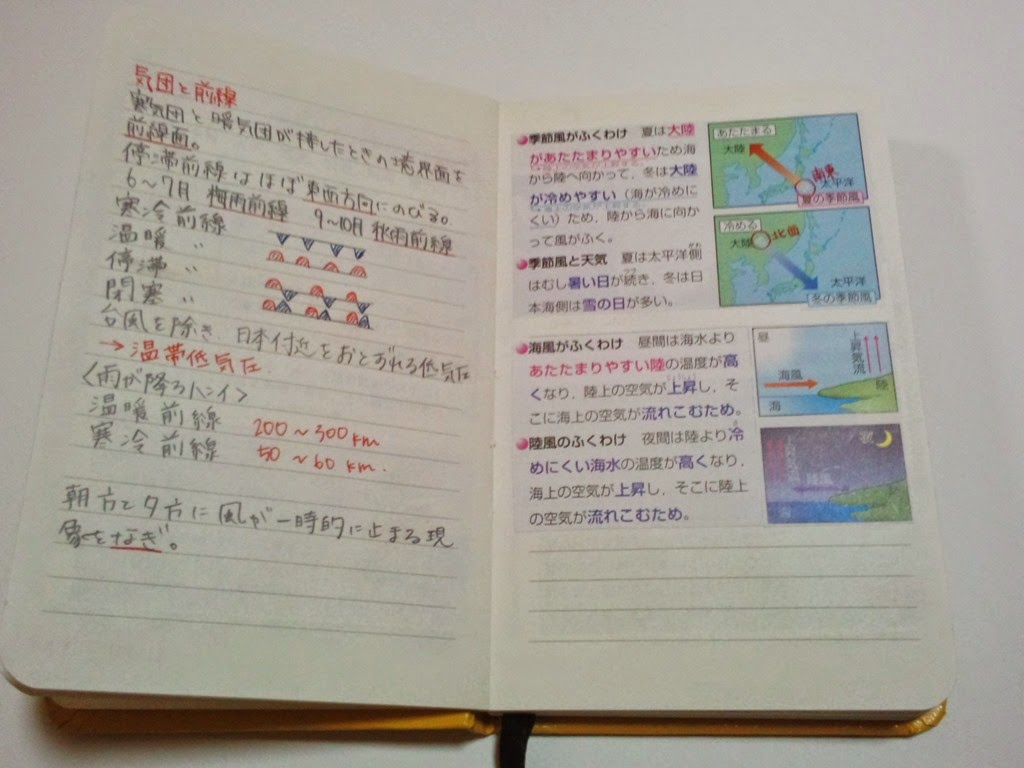 気団と前線
寒気団と暖気団が接したときの境界面を
前線面。
停滞前線はほぼ東西方向にのびる。
6〜7月 梅雨前線 9〜10月 秋雨前線
寒冷前線
温暖 〃
停滞 〃
閉塞 〃
台風を除き、日本付近をおとずれる低気圧
→温帯低気圧
〈雨が降るハンイ〉
温暖前線 200〜300km
寒冷前線 50〜60km.
朝方と夕方に風が一時的に止まる現
象をなぎ。
●季節風がふくわけ 夏は大陸
があたたまりやすいため海
から陸へ向かって，冬は大陸
が冷めやすい（海が冷めに
くい）ため，陸から海に向か
って風がふく。
●季節風と天気 夏は太平洋側
はむし暑い日が続き，冬は日
本海側は雪の日が多い。
あたたまる
大陸
南東
太平洋
夏の季節風
冷める
大陸
北西
太平洋
冬の季節風
●海風がふくわけ 昼間は海水より
あたたまりやすい陸の温度が高
くなり，陸上の空気が上昇し，そ
こに海上の空気が流れこむため。
●陸風のふくわけ 夜間は陸より冷
めにくい海水の温度が高くなり，
海上の空気が上昇し，そこに陸上
の空気が流れこむため。
昼
上昇気流
海風
陸
海
夜
陸風